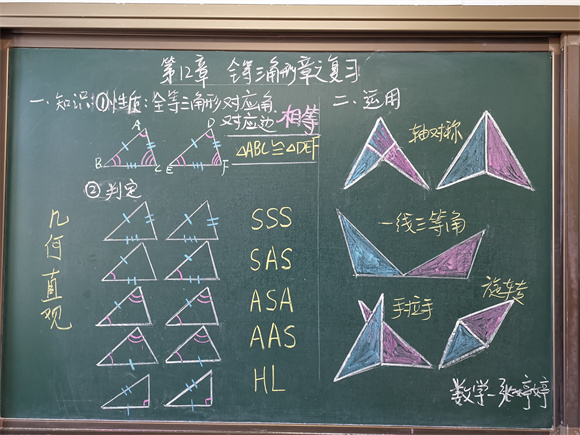 第12章 全等三角形章之复习
一、知识:①性质:全等三角形对应角
对应边 相等
A
B
C
D
E
F
△ABC≌△DEF
②判定
几何直观
SSS
SAS
ASA
AAS
HL
二、运用
轴对称
一线三等角
手拉手
旋转
数学-张婷婷